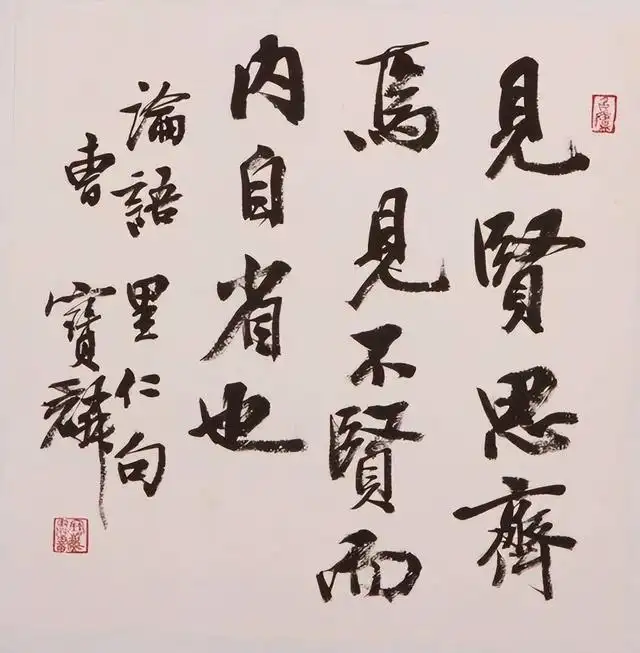 見賢思齊
焉見不賢而
内自省也
論語 里仁句
曹 寶麟